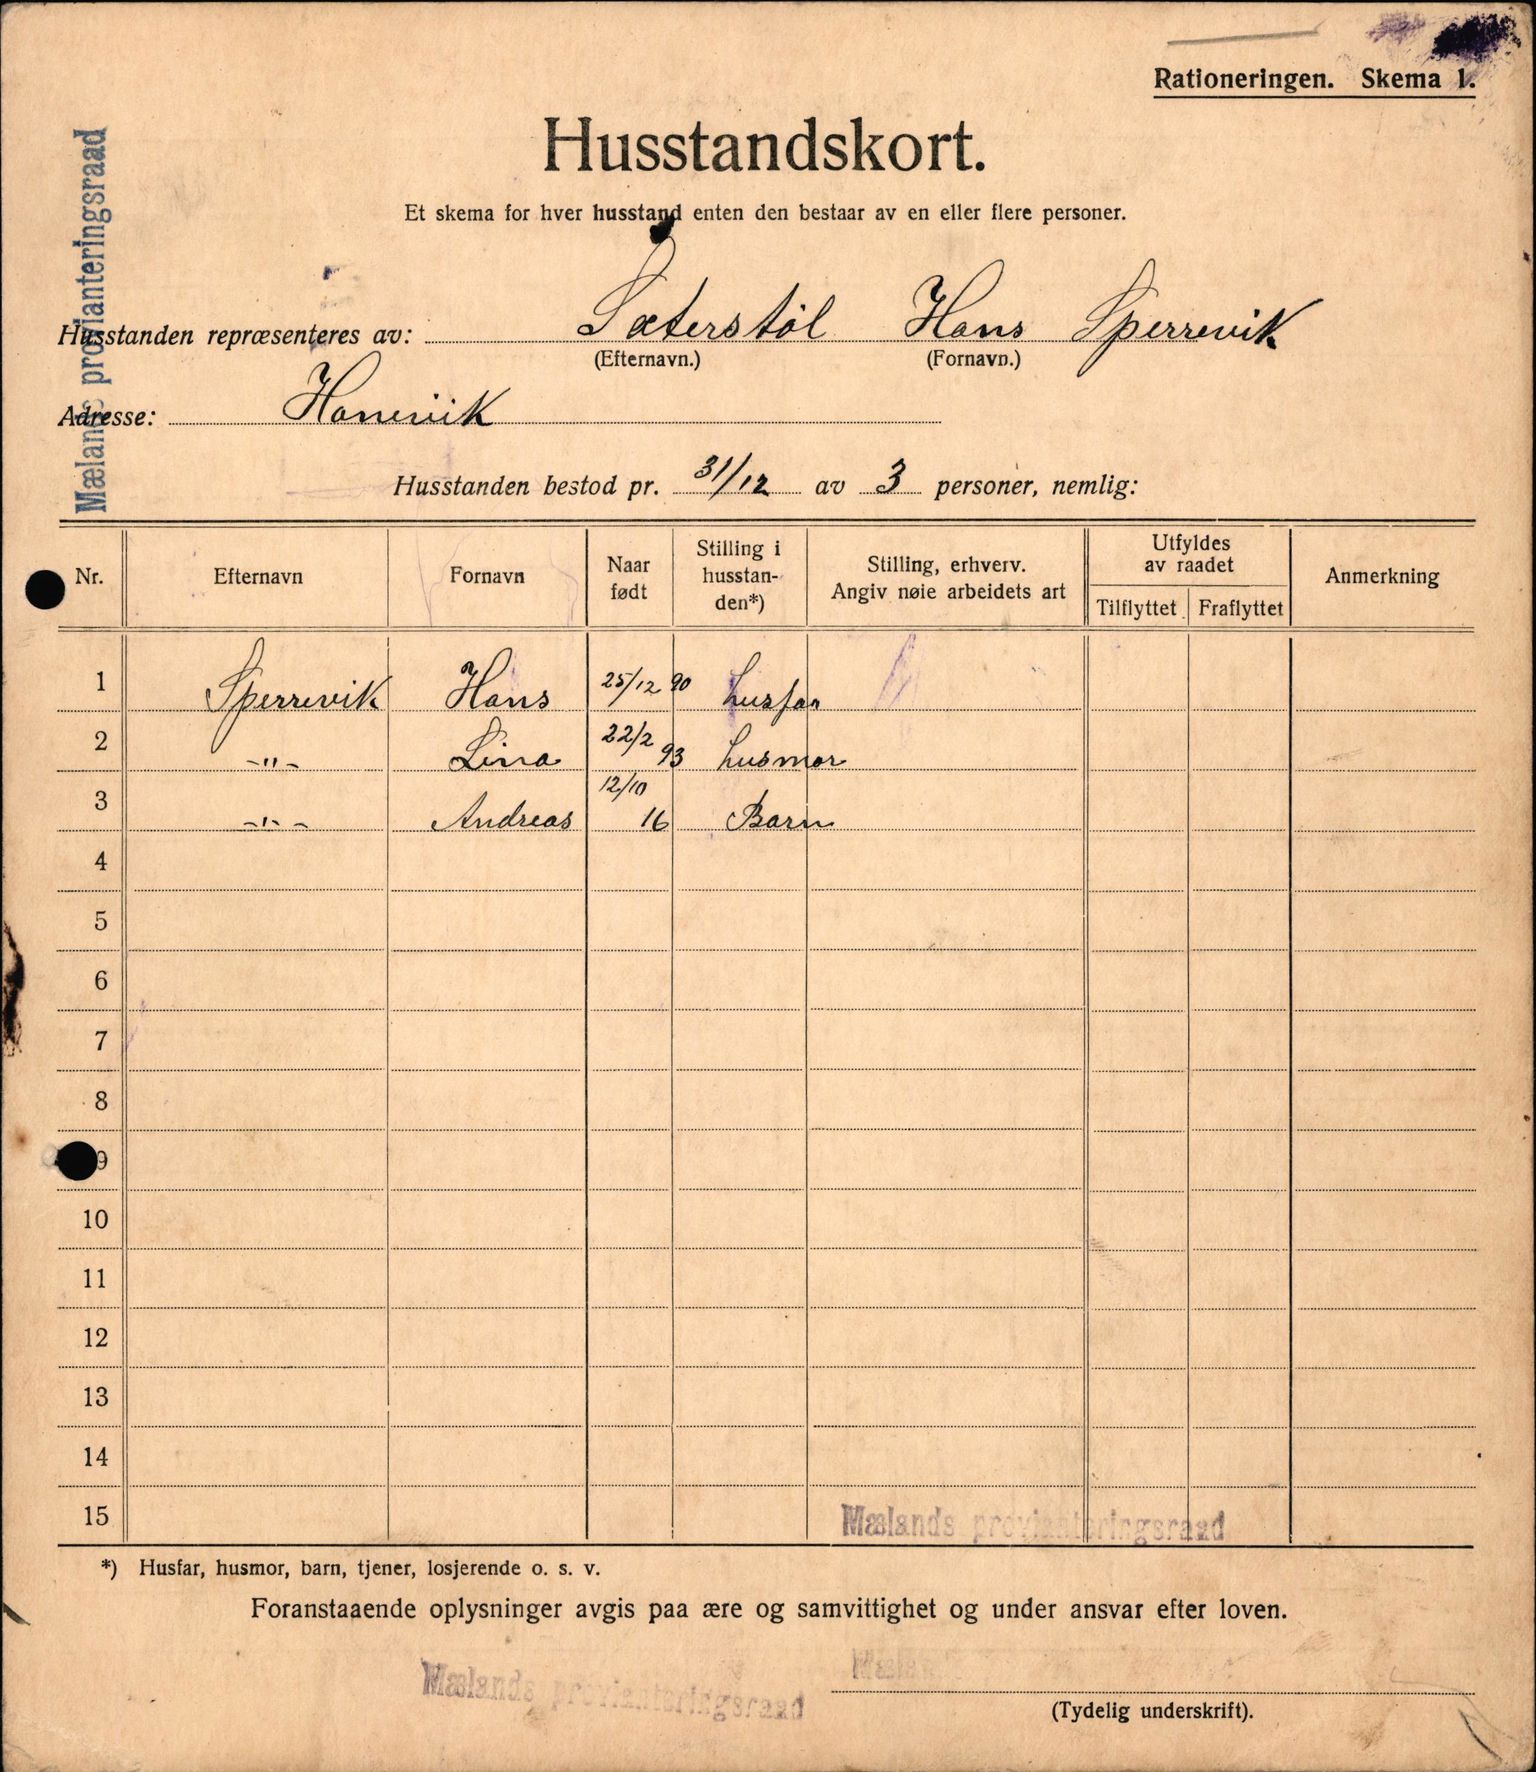 Rationeringen. Skema 1.
Husstandskort.
Et skema for hver husstand enten den bestaar av en eller flere personer.
Mælands provianteringsraad
Husstanden repræsenteres av: Sæterstøl Hans Sperrevik
(Efternavn.) (Fornavn.)
Adresse: Hanevik
Husstanden bestod pr. 31/12 av 3 personer, nemlig:
Nr. Efternavn Fornavn Naar født Stilling i husstan-den*) Stilling, erhverv. Angiv nøie arbeidets art Utfyldes av raadet Tilflyttet Fraflyttet Anmerkning
1 Sperrevik Hans 25/12 90 husfar
2 -"- Lina 22/2 93 husmor
3 -"- Andreas 12/10 16 Barn
4
5
6
7
8
9
10
11
12
13
14
15
Mælands provianteringsraad
*) Husfar, husmor, barn, tjener, losjerende o. s. v.
Foranstaaende oplysninger avgis paa ære og samvittighet og under ansvar efter loven.
Mælands provianteringsraad
Mælan
(Tydelig underskrift).